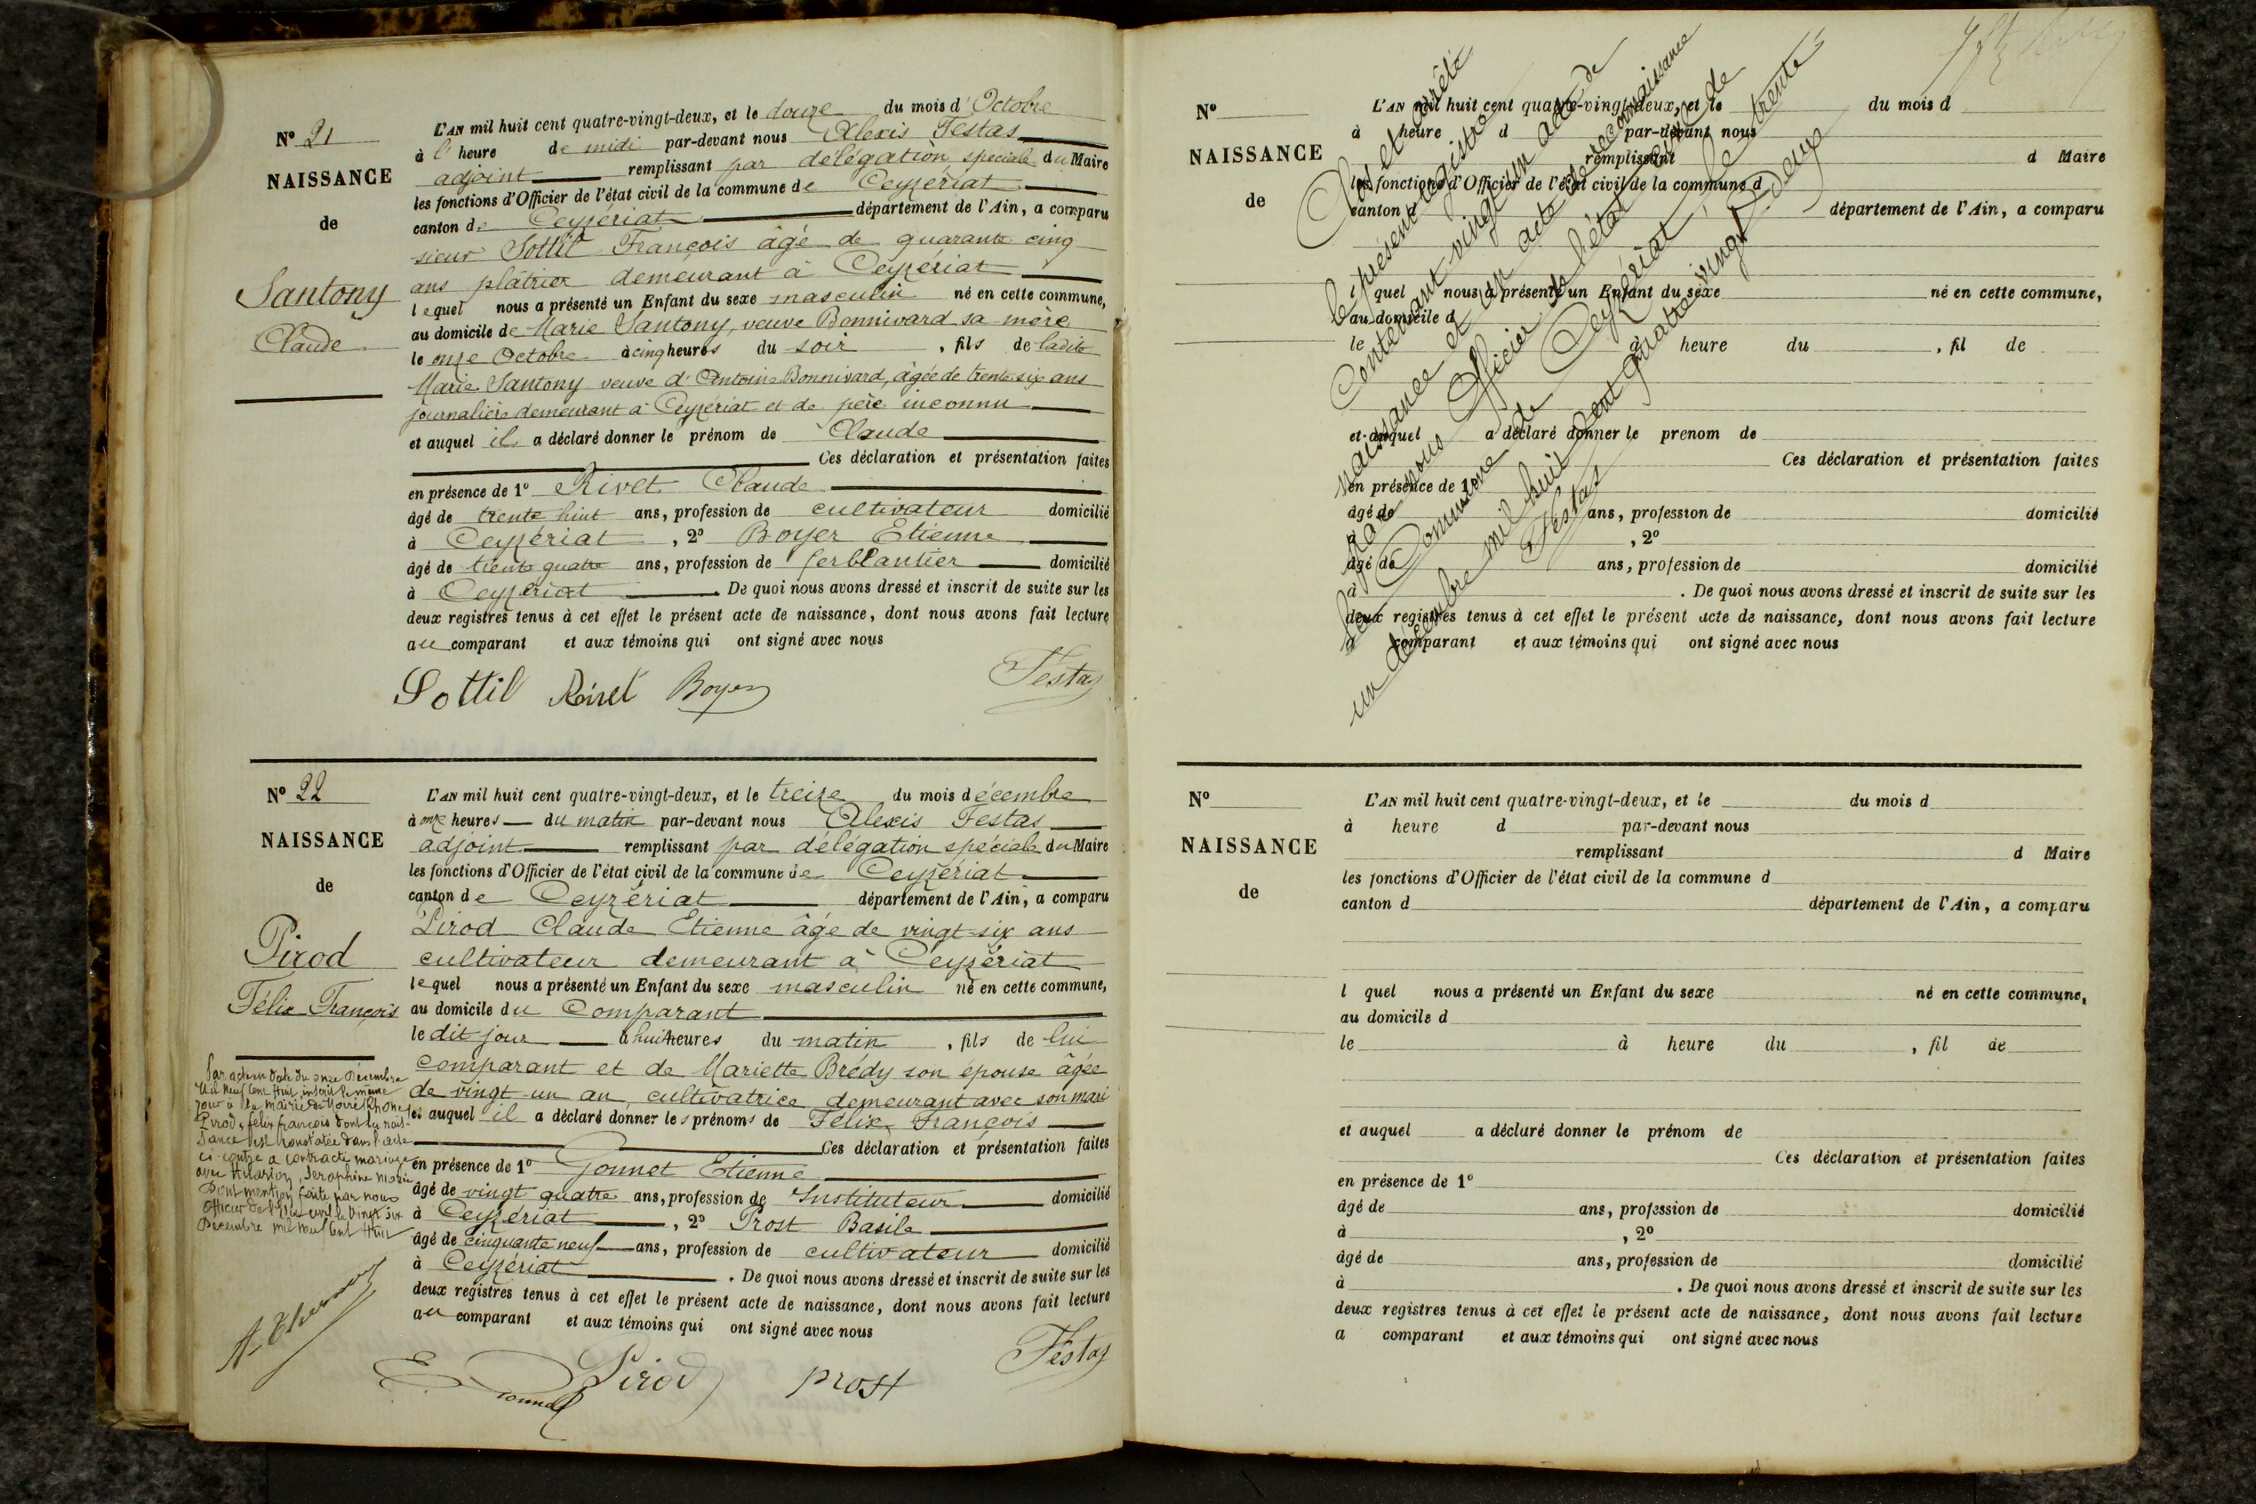 N° 21
NAISSANCE
de
Santony
Claude
L'AN mil huit cent quatre-vingt-deux, et le douze du mois d'Octobre
à l'heure de midi par-devant nous Alexis Festas
adjoint remplissant par délégation spéciale du Maire
les fonctions d'Officier de l'état civil de la commune de Ceyzériat
canton de Ceyzériat département de l'Ain, a comparu
sieur Sottil François âgé de quarante cinq
ans plâtrier demeurant à Ceyzériat
lequel nous a présenté un Enfant du sexe masculin né en cette commune,
au domicile de Marie Santony, veuve Bonnivard sa mère
le onze Octobre à cinq heures du soir, fils de ladite
Marie Santony veuve d'Antoine Bonnivard, âgée de trente six ans
journalière demeurant à Ceyzériat et de père inconnu
et auquel il a déclaré donner le prénom de Claude
Ces déclaration et présentation faites
en présence de 1° Rivet Claude
âgé de trente huit ans, profession de cultivateur domicilié
à Ceyzériat, 2° Boyer Etienne
âgé de trente quatre ans, profession de ferblantier domicilié
à Ceyzériat. De quoi nous avons dressé et inscrit de suite sur les
deux registres tenus à cet effet le présent acte de naissance, dont nous avons fait lecture
au comparant et aux témoins qui ont signé avec nous
Sottil Rivet Boyer Festas
N° 22
NAISSANCE
de
Pirod
Félix François
Par acte en date du onze Décembre
Mil neuf Cent Huit, inscrit le même
jour à la mairie de Rhône
Pirod, félix françois dont la nais-
sance est constatée dans l'acte
ci-contre a contracté mariage
avec Hilarion, Séraphine Marie
Dont mention faite par nous
Officier de l'état civil le vingt six
Décembre mil neuf Cent Huit
L'AN mil huit cent quatre-vingt-deux, et le treize du mois décembre
à onze heures du matin par-devant nous Alexis Festas
adjoint remplissant par délégation spéciale du Maire
les fonctions d'Officier de l'état civil de la commune de Ceyzériat
canton de Ceyzériat département de l'Ain, a comparu
Pirod Claude Etienne âgé de vingt-six ans
cultivateur demeurant à Ceyzériat
lequel nous a présenté un Enfant du sexe masculin né en cette commune,
au domicile du Comparant
le dit jour à huit heures du matin, fils de lui
comparant et de Mariette Brédy son épouse âgée
de vingt-un an, cultivatrice demeurant avec son mari
et auquel il a déclaré donner les prénoms de Félix François
Ces déclaration et présentation faites
en présence de 1° Gonnet Etienne
âgé de vingt quatre ans, profession de Instituteur domicilié
à Ceyzériat, 2° Prost Basile
âgé de cinquante neuf ans, profession de cultivateur domicilié
à Ceyzériat. De quoi nous avons dressé et inscrit de suite sur les
deux registres tenus à cet effet le présent acte de naissance, dont nous avons fait lecture
au comparant et aux témoins qui ont signé avec nous
E Gonnet Pirod prost Festas
N°
NAISSANCE
de
L'AN mil huit cent quatre-vingt-deux, et le du mois d
à heure d par-devant nous
remplissant d Maire
les fonctions d'Officier de l'état civil de la commune d
canton d département de l'Ain, a comparu
l quel nous a présenté un Enfant du sexe né en cette commune,
au domicile d
le à heure du , fil de
et auquel a déclaré donner le prénom de
Ces déclaration et présentation faites
en présence de 1°
âgé de ans, profession de domicilié
à , 2°
âgé de ans, profession de domicilié
à . De quoi nous avons dressé et inscrit de suite sur les
deux registres tenus à cet effet le présent acte de naissance, dont nous avons fait lecture
a comparant et aux témoins qui ont signé avec nous
Clos et arrêté
le présent registre
Contenant vingt un actes de
naissance et un acte de reconnaissance
par nous Officier de l'état civil de
la Commune de Ceyzériat le trente
un décembre mil huit cent quatre vingt deux
Festas
N°
NAISSANCE
de
L'AN mil huit cent quatre-vingt-deux, et le du mois d
à heure d par-devant nous
remplissant d Maire
les fonctions d'Officier de l'état civil de la commune d
canton d département de l'Ain, a comparu
l quel nous a présenté un Enfant du sexe né en cette commune,
au domicile d
le à heure du , fil de
et auquel a déclaré donner le prénom de
Ces déclaration et présentation faites
en présence de 1°
âgé de ans, profession de domicilié
à , 2°
âgé de ans, profession de domicilié
à . De quoi nous avons dressé et inscrit de suite sur les
deux registres tenus à cet effet le présent acte de naissance, dont nous avons fait lecture
a comparant et aux témoins qui ont signé avec nous